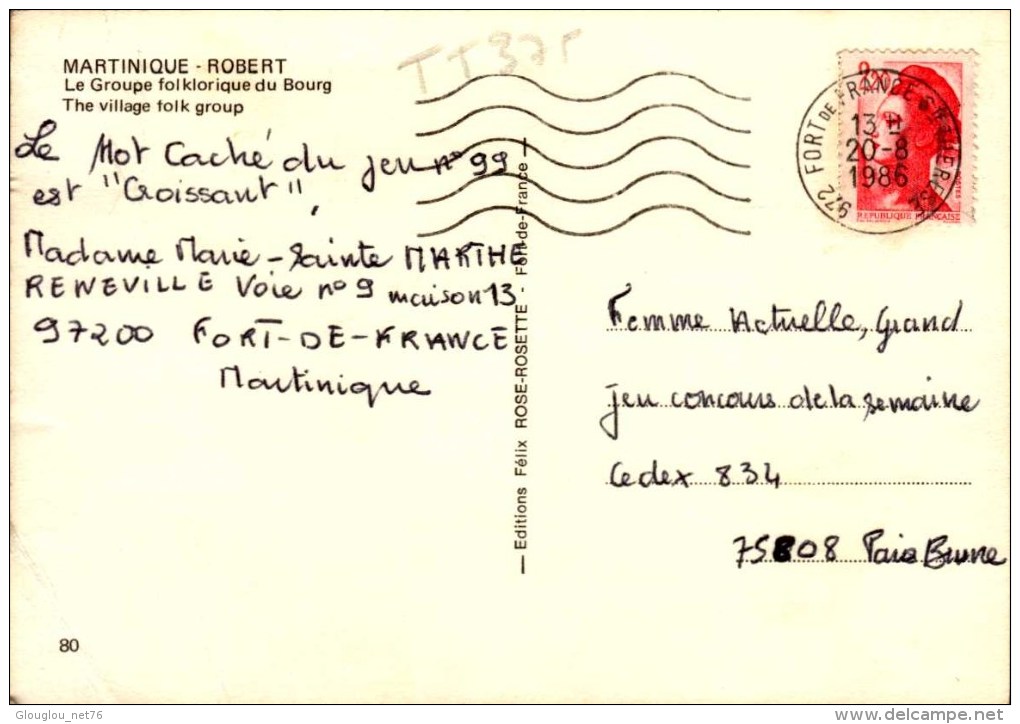 MARTINIQUE - ROBERT
Le Groupe folklorique du Bourg
The village folk group
TT 375
Le Mot Caché du jeu n° 99
est "Croissant",
Madame Marie-Sainte MARTHE
RENEVILLE Voie n° 9 maison 13
97200 FORT-DE-FRANCE
Martinique
— Editions Félix ROSE-ROSETTE - Fort-de-France —
2,20
972 FORT DE FRANCE
13 H
20-8
1986
POSTES
REPUBLIQUE FRANÇAISE
Femme Actuelle, Grand
jeu concours de la semaine
Cedex 834
75808 Paris Brune
80
Glouglou_net76
delcampe.net